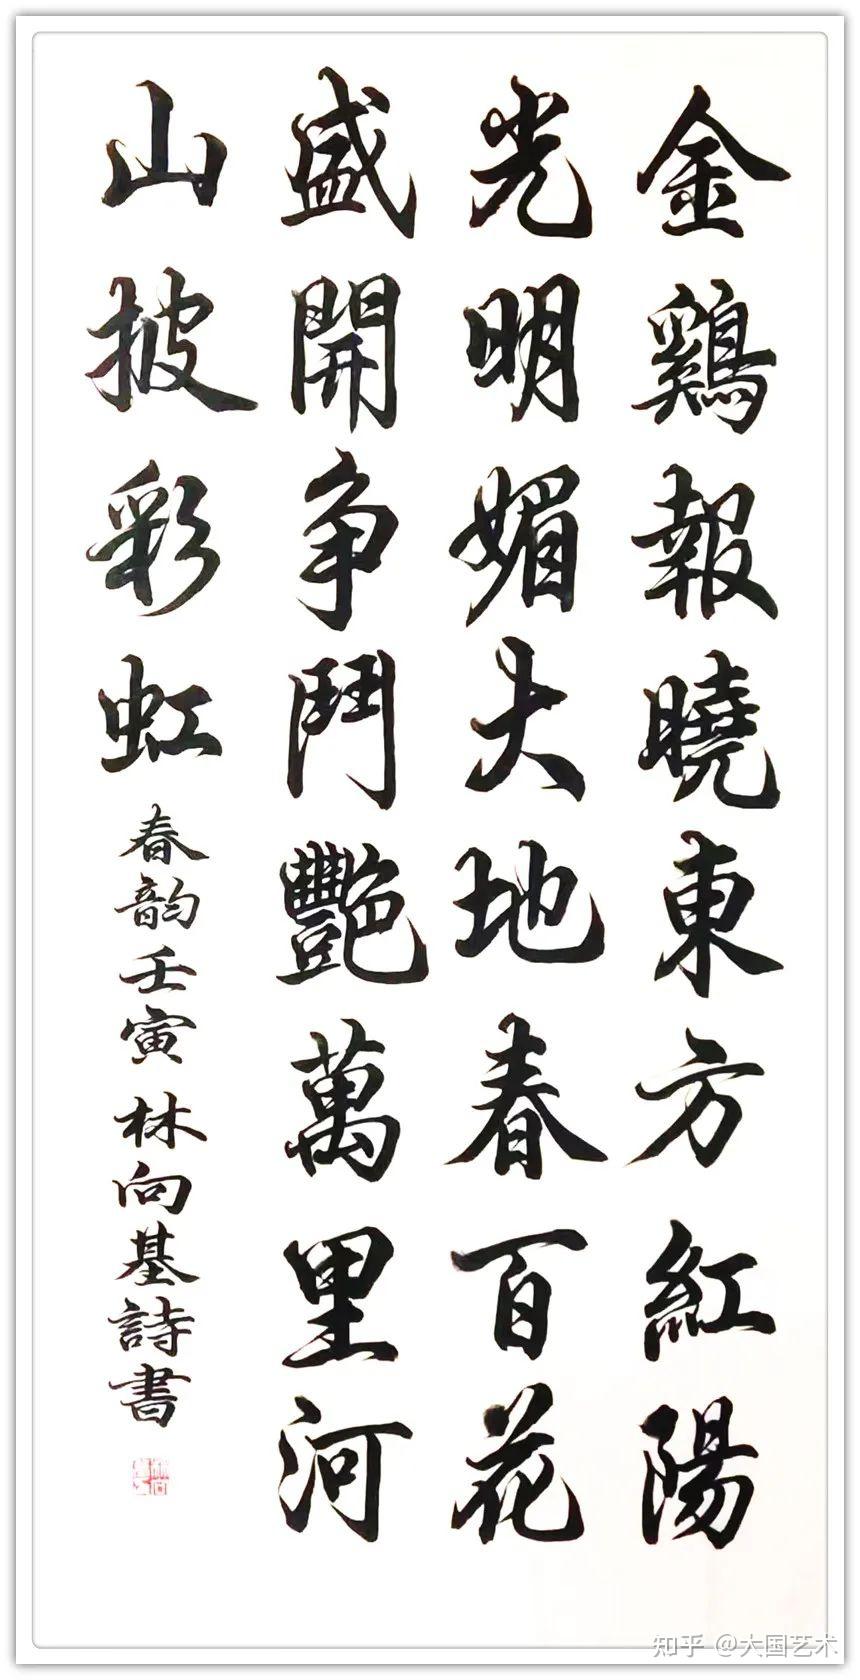 金鷄報曉東方紅陽
光明媚大地春百花
盛開争鬥艷萬里河
山披彩虹
春韵壬寅林向基詩書
知乎 @大国艺术